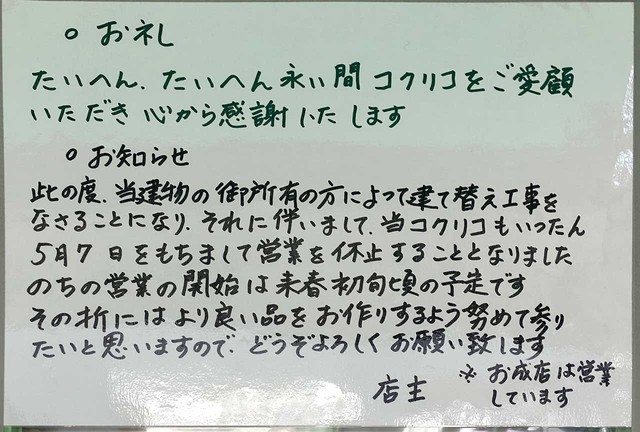 ○ お礼
たいへん、たいへん永い間コクリコをご愛顧
いただき心から感謝いたします
○ お知らせ
此の度、当建物の御所有の方によって建て替え工事を
なさることになり、それに伴いまして、当コクリコもいったん
5月7日をもちまして営業を休止することとなりました
のちの営業の開始は来春初旬頃の予定です
その折にはより良い品をお作りするよう努めて参り
たいと思いますので、どうぞよろしくお願い致します
店主
※ お成店は営業
しています